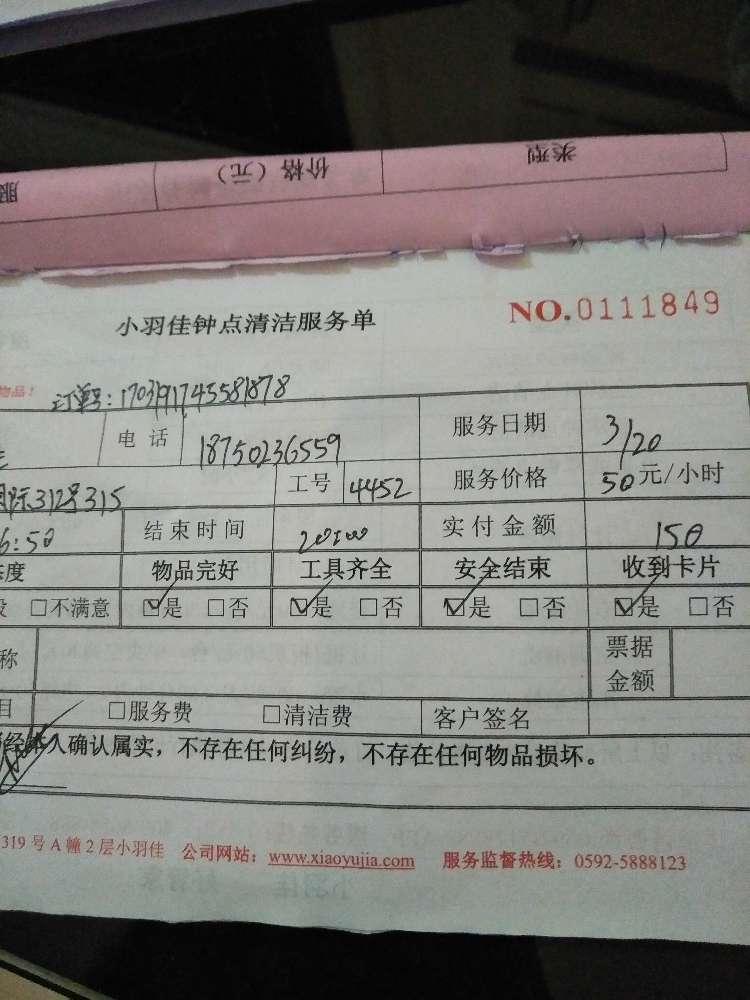 服
价格（元）
类型
小羽佳钟点清洁服务单
NO.0111849
物品！
订单号：17031917435581878
电 话
18750236559
服务日期
3/20
国际312号315
工号
4452
服务价格
50元/小时
6:50
结束时间
20:00
实付金额
150
态度
物品完好
工具齐全
安全结束
收到卡片
□不满意
☑是 □否
☑是 □否
☑是 □否
☑是 □否
称
票据
金额
目
□服务费
□清洁费
客户签名
经本人确认属实，不存在任何纠纷，不存在任何物品损坏。
319号A幢2层小羽佳 公司网站：www.xiaoyujia.com 服务监督热线：0592-5888123